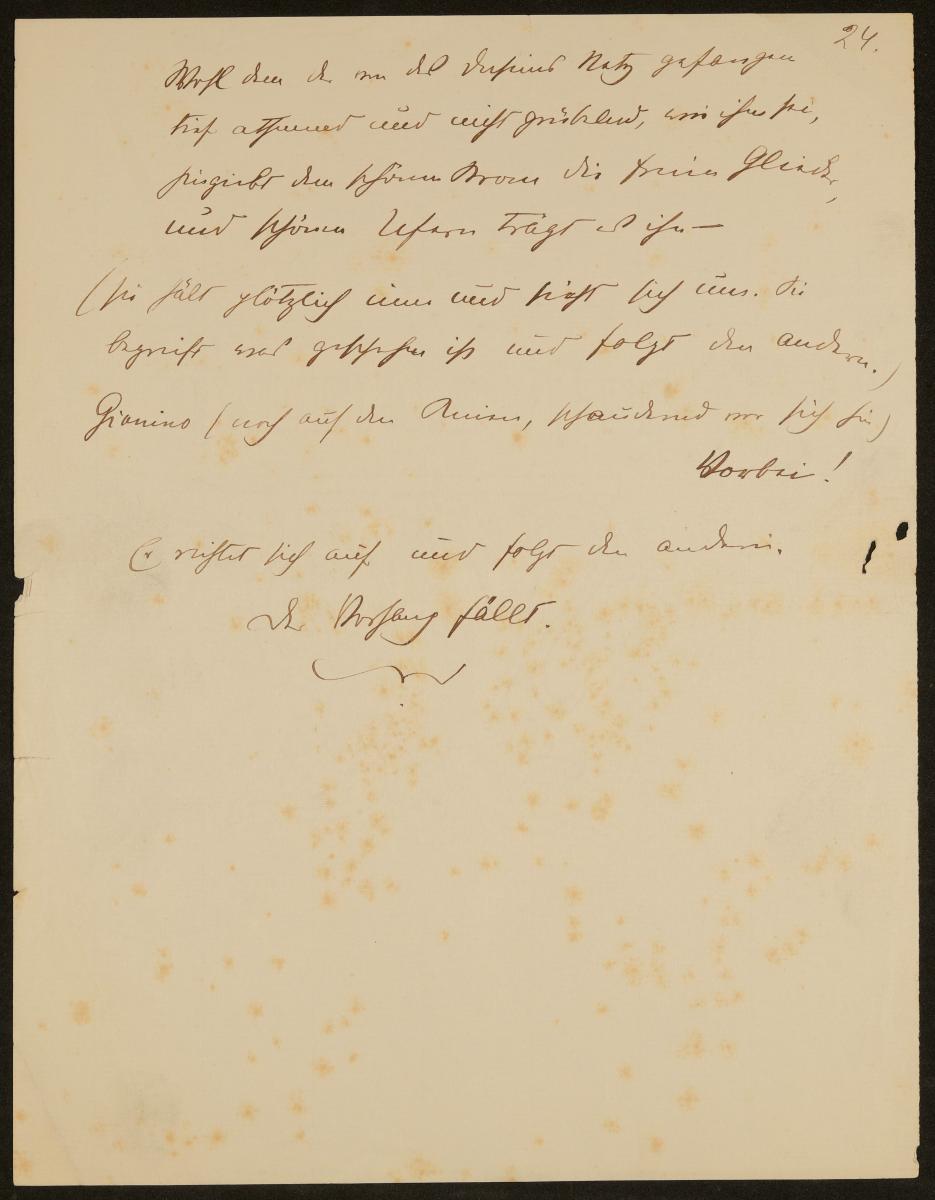 24.
Wohl dem der von des Daseins Netz gefangen
tief athmend und nicht grübelnd, wie ihm sei,
hingiebt dem schönen Strom die freien Glieder,
und schönen Ufern trägt es ihn —
(sie hält plötzlich inne und sieht sich um. Sie
begreift was geschehen ist und folgt den andern.)
Gianino (noch auf den Knieen, schaudernd vor sich hin)
Vorbei!
Er richtet sich auf und folgt den andern.
Der Vorhang fällt.